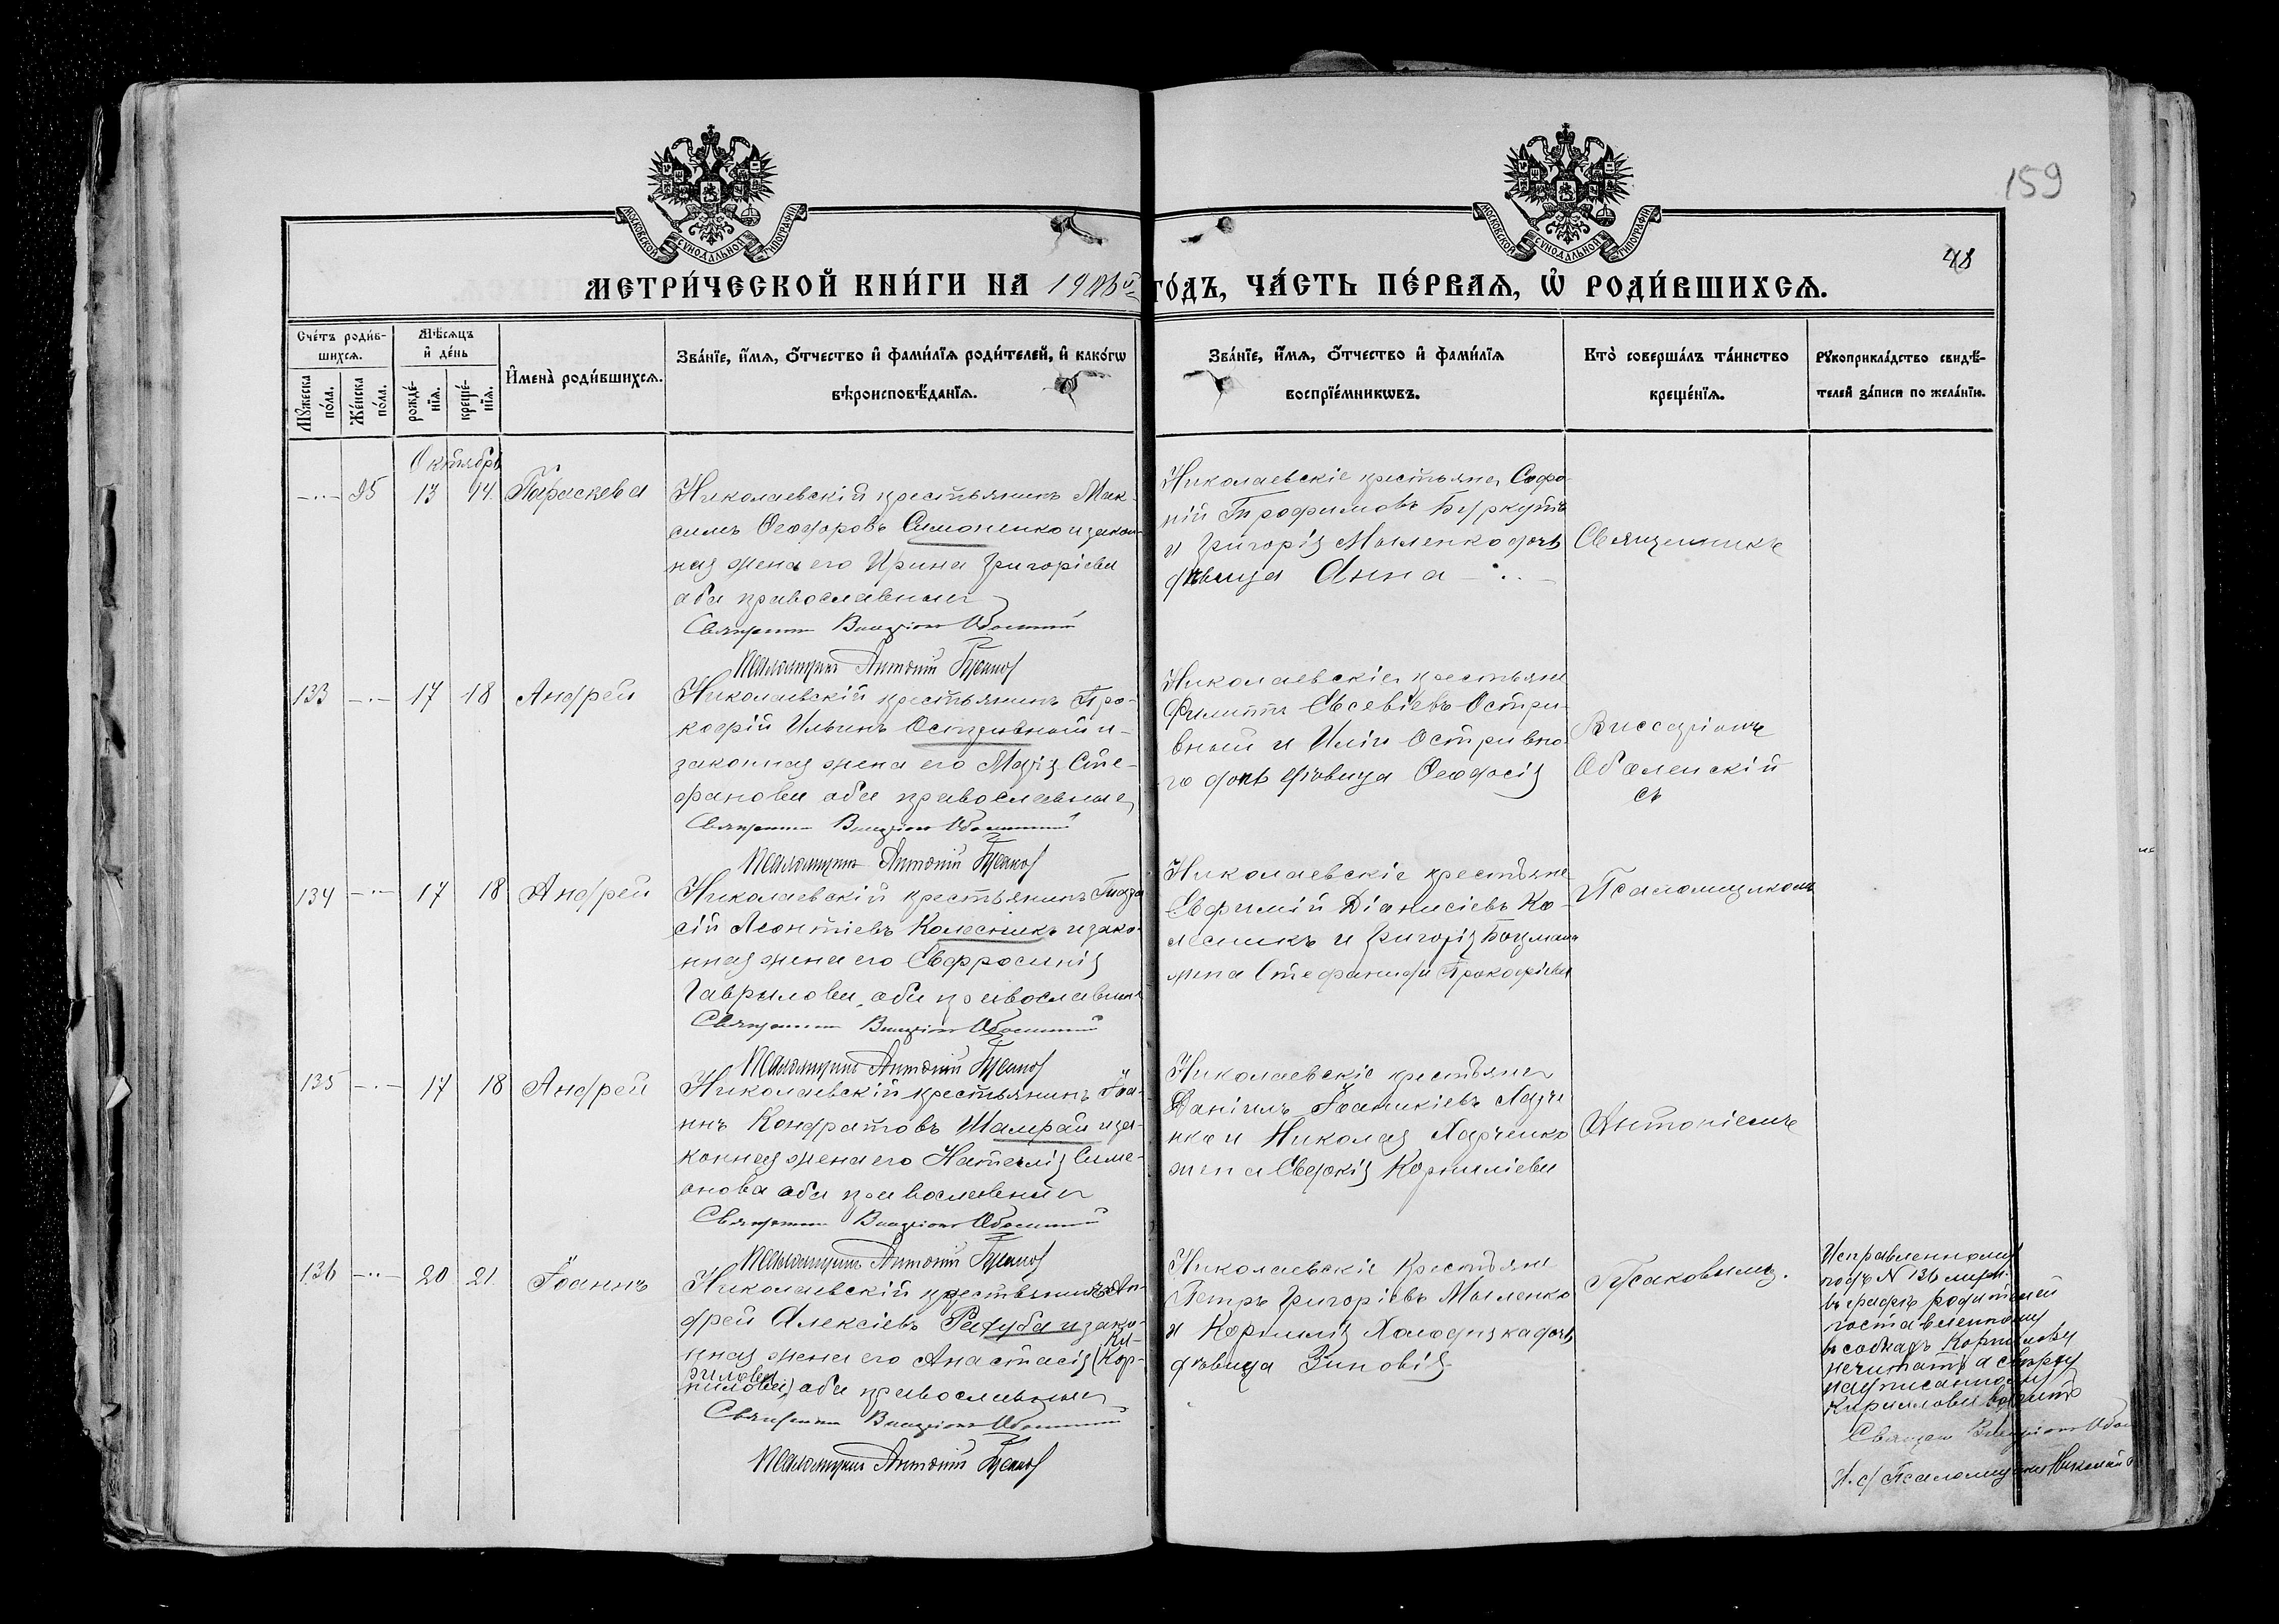 159
48
МОСКОВСКОЙ СѴНОДАЛЬНОЙ ТИПОГРАФІИ
МОСКОВСКОЙ СѴНОДАЛЬНОЙ ТИПОГРАФІИ
МЕТРИ́ЧЕСКОЙ КНИ́ГИ НА
ГО́ДЪ, ЧА́СТЬ ПЕ́РВАѦ, Ѡ҆ РОДИ́ВШИХСѦ.
Сче́тъ роди́в-
шихсѧ.
Мꙋ́жеска по́ла.
Же́нска по́ла.
Мѣ́сѧцъ
и҆ де́нь
рожде́-нїѧ.
креще́-нїѧ.
И҆мена̀ роди́вшихсѧ.
Зва́нїе, и҆́мѧ, ѻ҆́тчество и҆ фами́лїѧ роди́телей, и҆ како́гѡ
вѣроисповѣ́данїѧ.
Зва́нїе, и҆́мѧ, ѻ҆́тчество и҆ фами́лїѧ
воспрїе́мникѡвъ.
Кто̀ соверша́лъ та́инство
креще́нїѧ.
Рꙋкоприкла́дство свидѣ́-
телей за́писи по жела́нїю.
Октябрь
95 13 14 Параскева
Николаевскій крестьянинъ Мак-
симъ Ѳеодоровъ Симоненко и закон-
ная жена его Ирина Григоріева
оба православные
Священник Виссаріон Оболенский
Псаломщикъ Антоній Гусаков
Николаевскіе крестьяне Софро-
ній Трофимовъ Буркутъ
и Григорія Мысленко дочь
дѣвица Анна
Священникъ
133 17 18 Андрей
Николаевскій крестьянинъ Про-
кофій Ильинъ Остривный и
законная жена его Марія Сте-
фанова оба православные
Священник Виссаріон Оболенский
Псаломщикъ Антоній Гусаков
Николаевскіе крестьяне
Филиппъ Евсевіевъ Остри-
вный и Иліи Остривно-
го дочь дѣвица Ѳеодосія
Виссаріонъ
Оболенскій
съ
134 17 18 Андрей
Николаевскій крестьянинъ
сій Леонтіевъ Колесникъ и зако-
нная жена его Евфросинія
Гаврилова, оба православные
Священник Виссаріон Оболенский
Псаломщикъ Антоній Гусаков
Николаевскіе крестьяне
Евфимій Діонисіевъ Ко-
лесникъ и Григорія Боцмана
жена Стефанида Прокофіева
Псаломщикомъ
135 17 18 Андрей
Николаевскій крестьянинъ Іоа-
ннъ Кондратовъ Шамрай и за-
конная жена его Наталія Симе-
онова оба православные
Священник Виссаріон Оболенский
Псаломщикъ Антоній Гусаков
Николаевскіе крестьяне
Даніилъ Іоаникіевъ Харче-
нко и Николая Харченко
жена Евдокія Корниліева
Антоніемъ
136 20 21 Іоаннъ
Николаевскій крестьянинъ Ан-
дрей Алексіевъ Радуба и зако-
нная жена его Анастасія (Кор- Ки-
нилова) рилова оба православные
Священник Виссаріон Оболенский
Псаломщикъ Антоній Гусаков
Николаевскіе крестьяне
Петръ Григоріевъ Мысленко
и Корнилія Холодняка дочь
дѣвица Зиновія
Гусаковымъ.
Исправленному
подъ N 136 муж.
въ графѣ родителей
поставленному
въ собкахъ Корнилову
нечитать а сверху
надписанному
Кирилловы вѣрить
Священ Виссаріон Обол
И. д. Псаломщика Николай